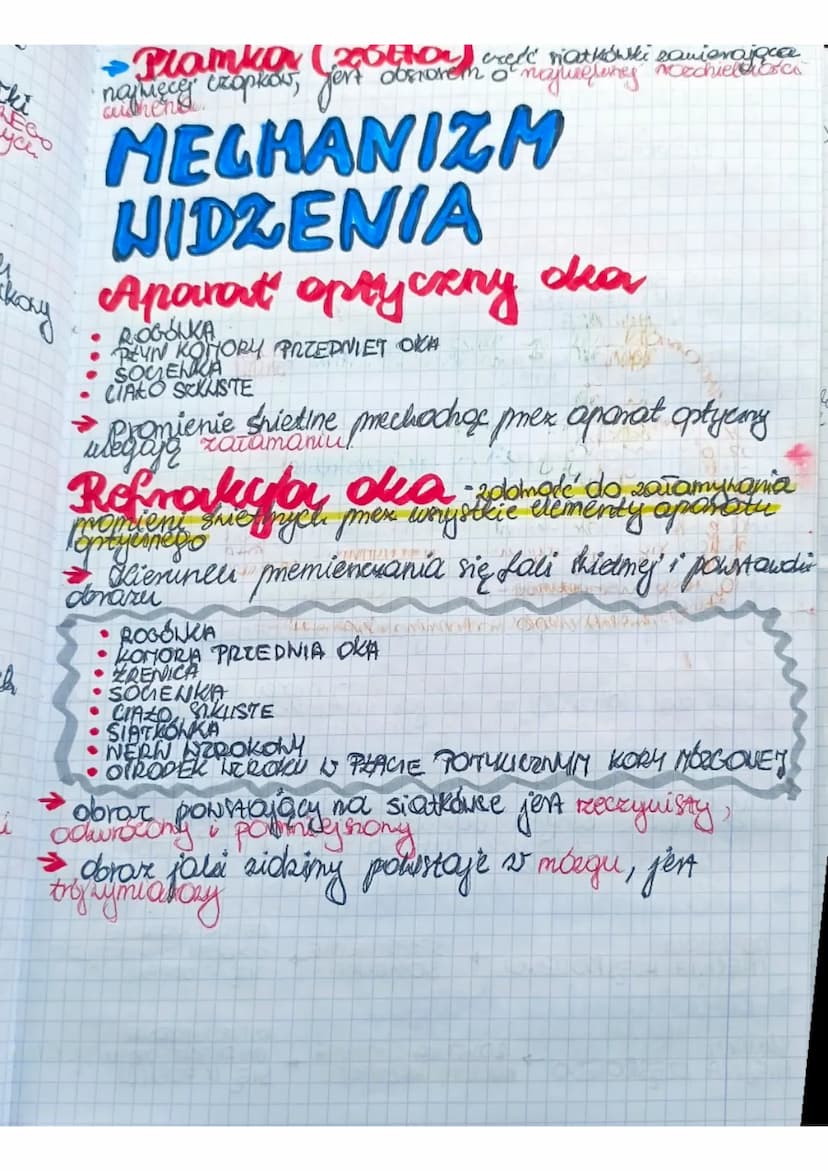 → Plamka (żółta) część siatkówki zawierająca
najwięcej czopków, jest obszarem o największej rozdzielczości
widzenia.
MECHANIZM
WIDZENIA
Aparat optyczny oka
• ROGÓWKA
• PŁYN KOMORY PRZEDNIEJ OKA
• SOCZEWKA
• CIAŁO SZKLISTE
→ promienie świetlne przechodząc przez aparat optyczny
ulegają załamaniu!
Refrakcja oka - zdolność do załamywania
promieni świetlnych przez wszystkie elementy aparatu
optycznego
→ kierunek przemieszczania się fali świetlnej i powstawania
obrazu
• ROGÓWKA
• KOMORA PRZEDNIA OKA
• ŹRENICA
• SOCZEWKA
• CIAŁO SZKLISTE
• SIATKÓWKA
• NERW WZROKOWY
• OŚRODEK WZROKU W PŁACIE POTYLICZNYM KORY MÓZGOWEJ
→ obraz powstający na siatkówce jest rzeczywisty,
odwrócony i pomniejszony
→ obraz jaki widzimy powstaje w mózgu, jest
trójwymiarowy